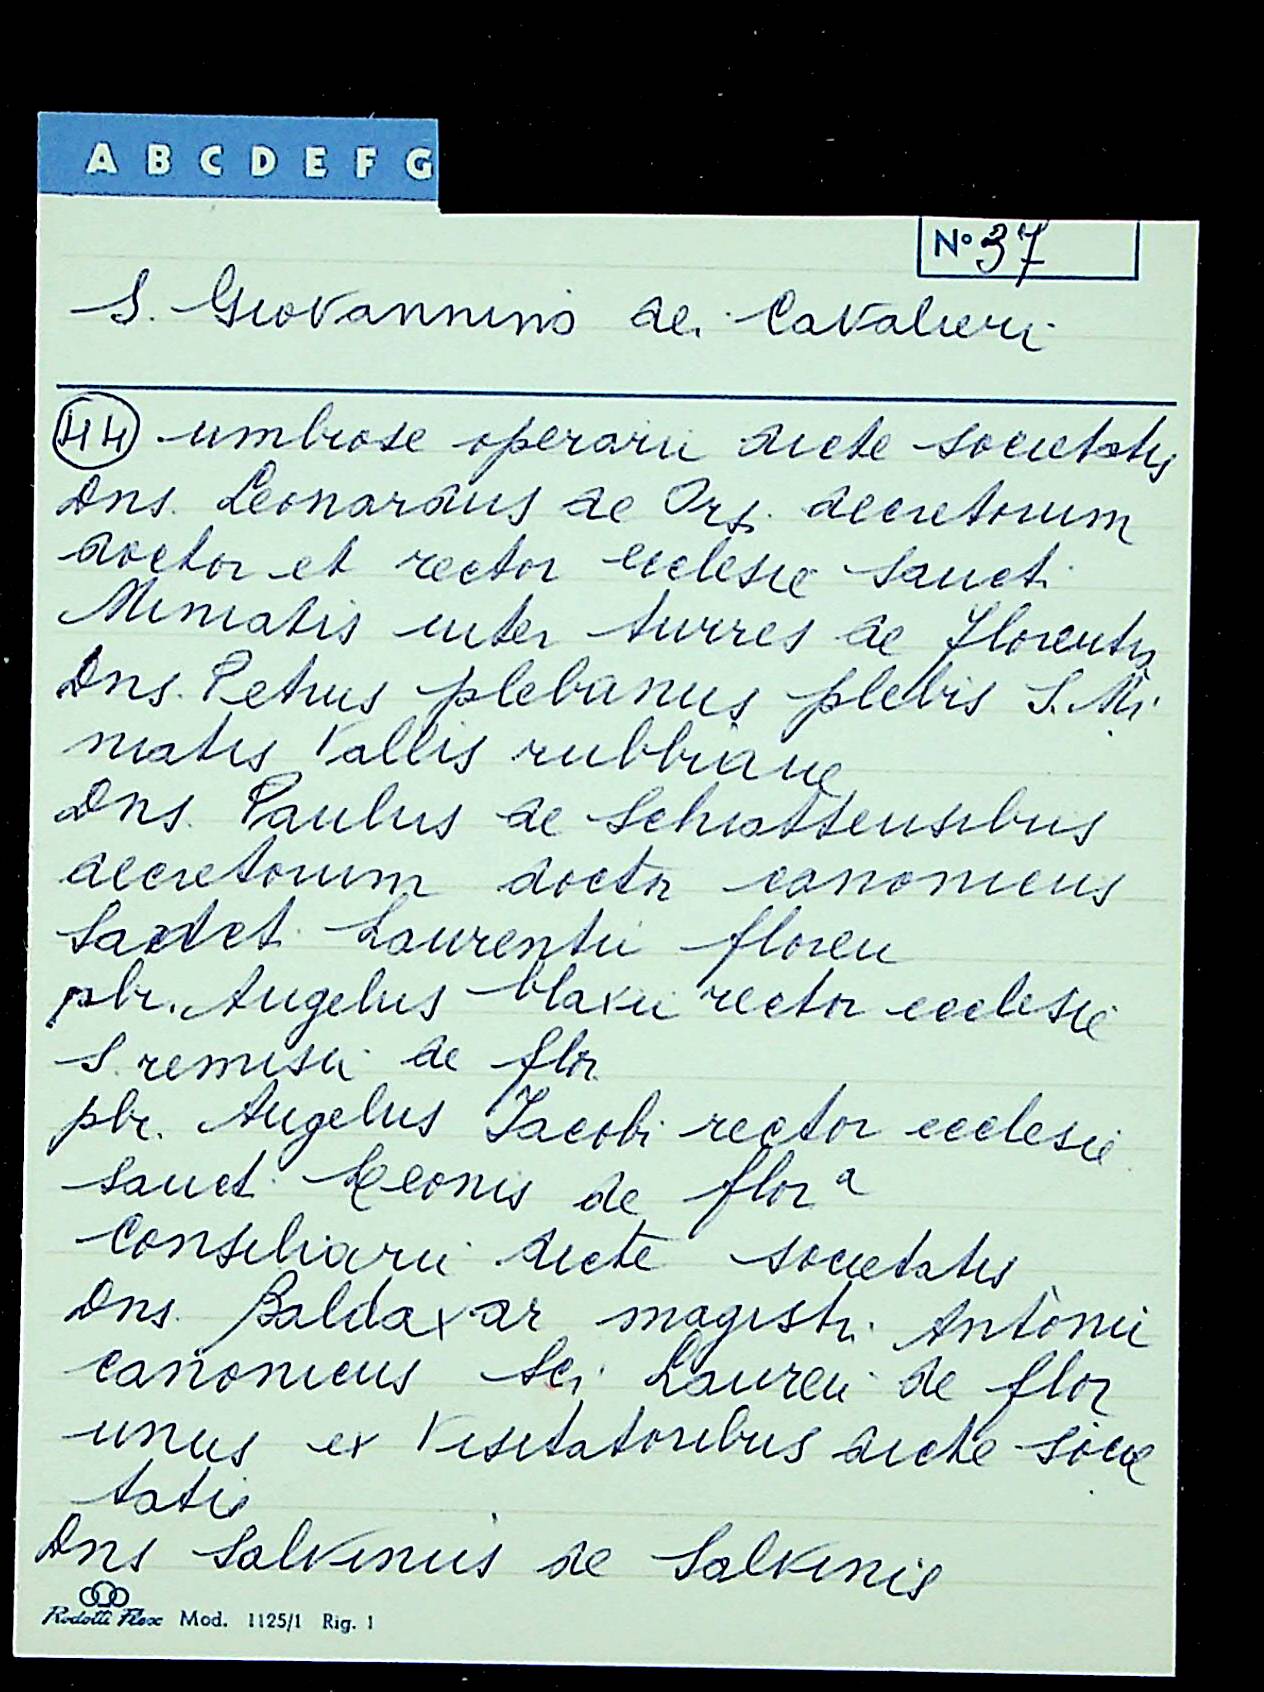 A B C D E F G
N° 37
S. Giovannino dei Cavalieri
44 umbrose operarii dicte societatis
Dns. Leonardus de Orz. decretorum
doctor et rector ecclesie sancti
Miniatis inter turres de Florentis
Dns. Petrus plebanus plebis S. Mi
niatis Vallis rubbiane
Dns. Paulus de Schiattensibus
decretorum doctor canonicus
Laurentii floren
pbr. Angelus blaxii rector ecclesie
S. remisii de flor
pbr. Angelus Jacobi rector ecclesie
sancti Leonis de flor a
Consiliarii dicte societatis
Dns. Baldaxar magistri Antonii
canonicus Sci Lauren de flor
unus ex Visitatoribus dicte socie
tatis
Dns Salvinus de Salvinis
Rodotti Flex Mod. 1125/1 Rig. 1